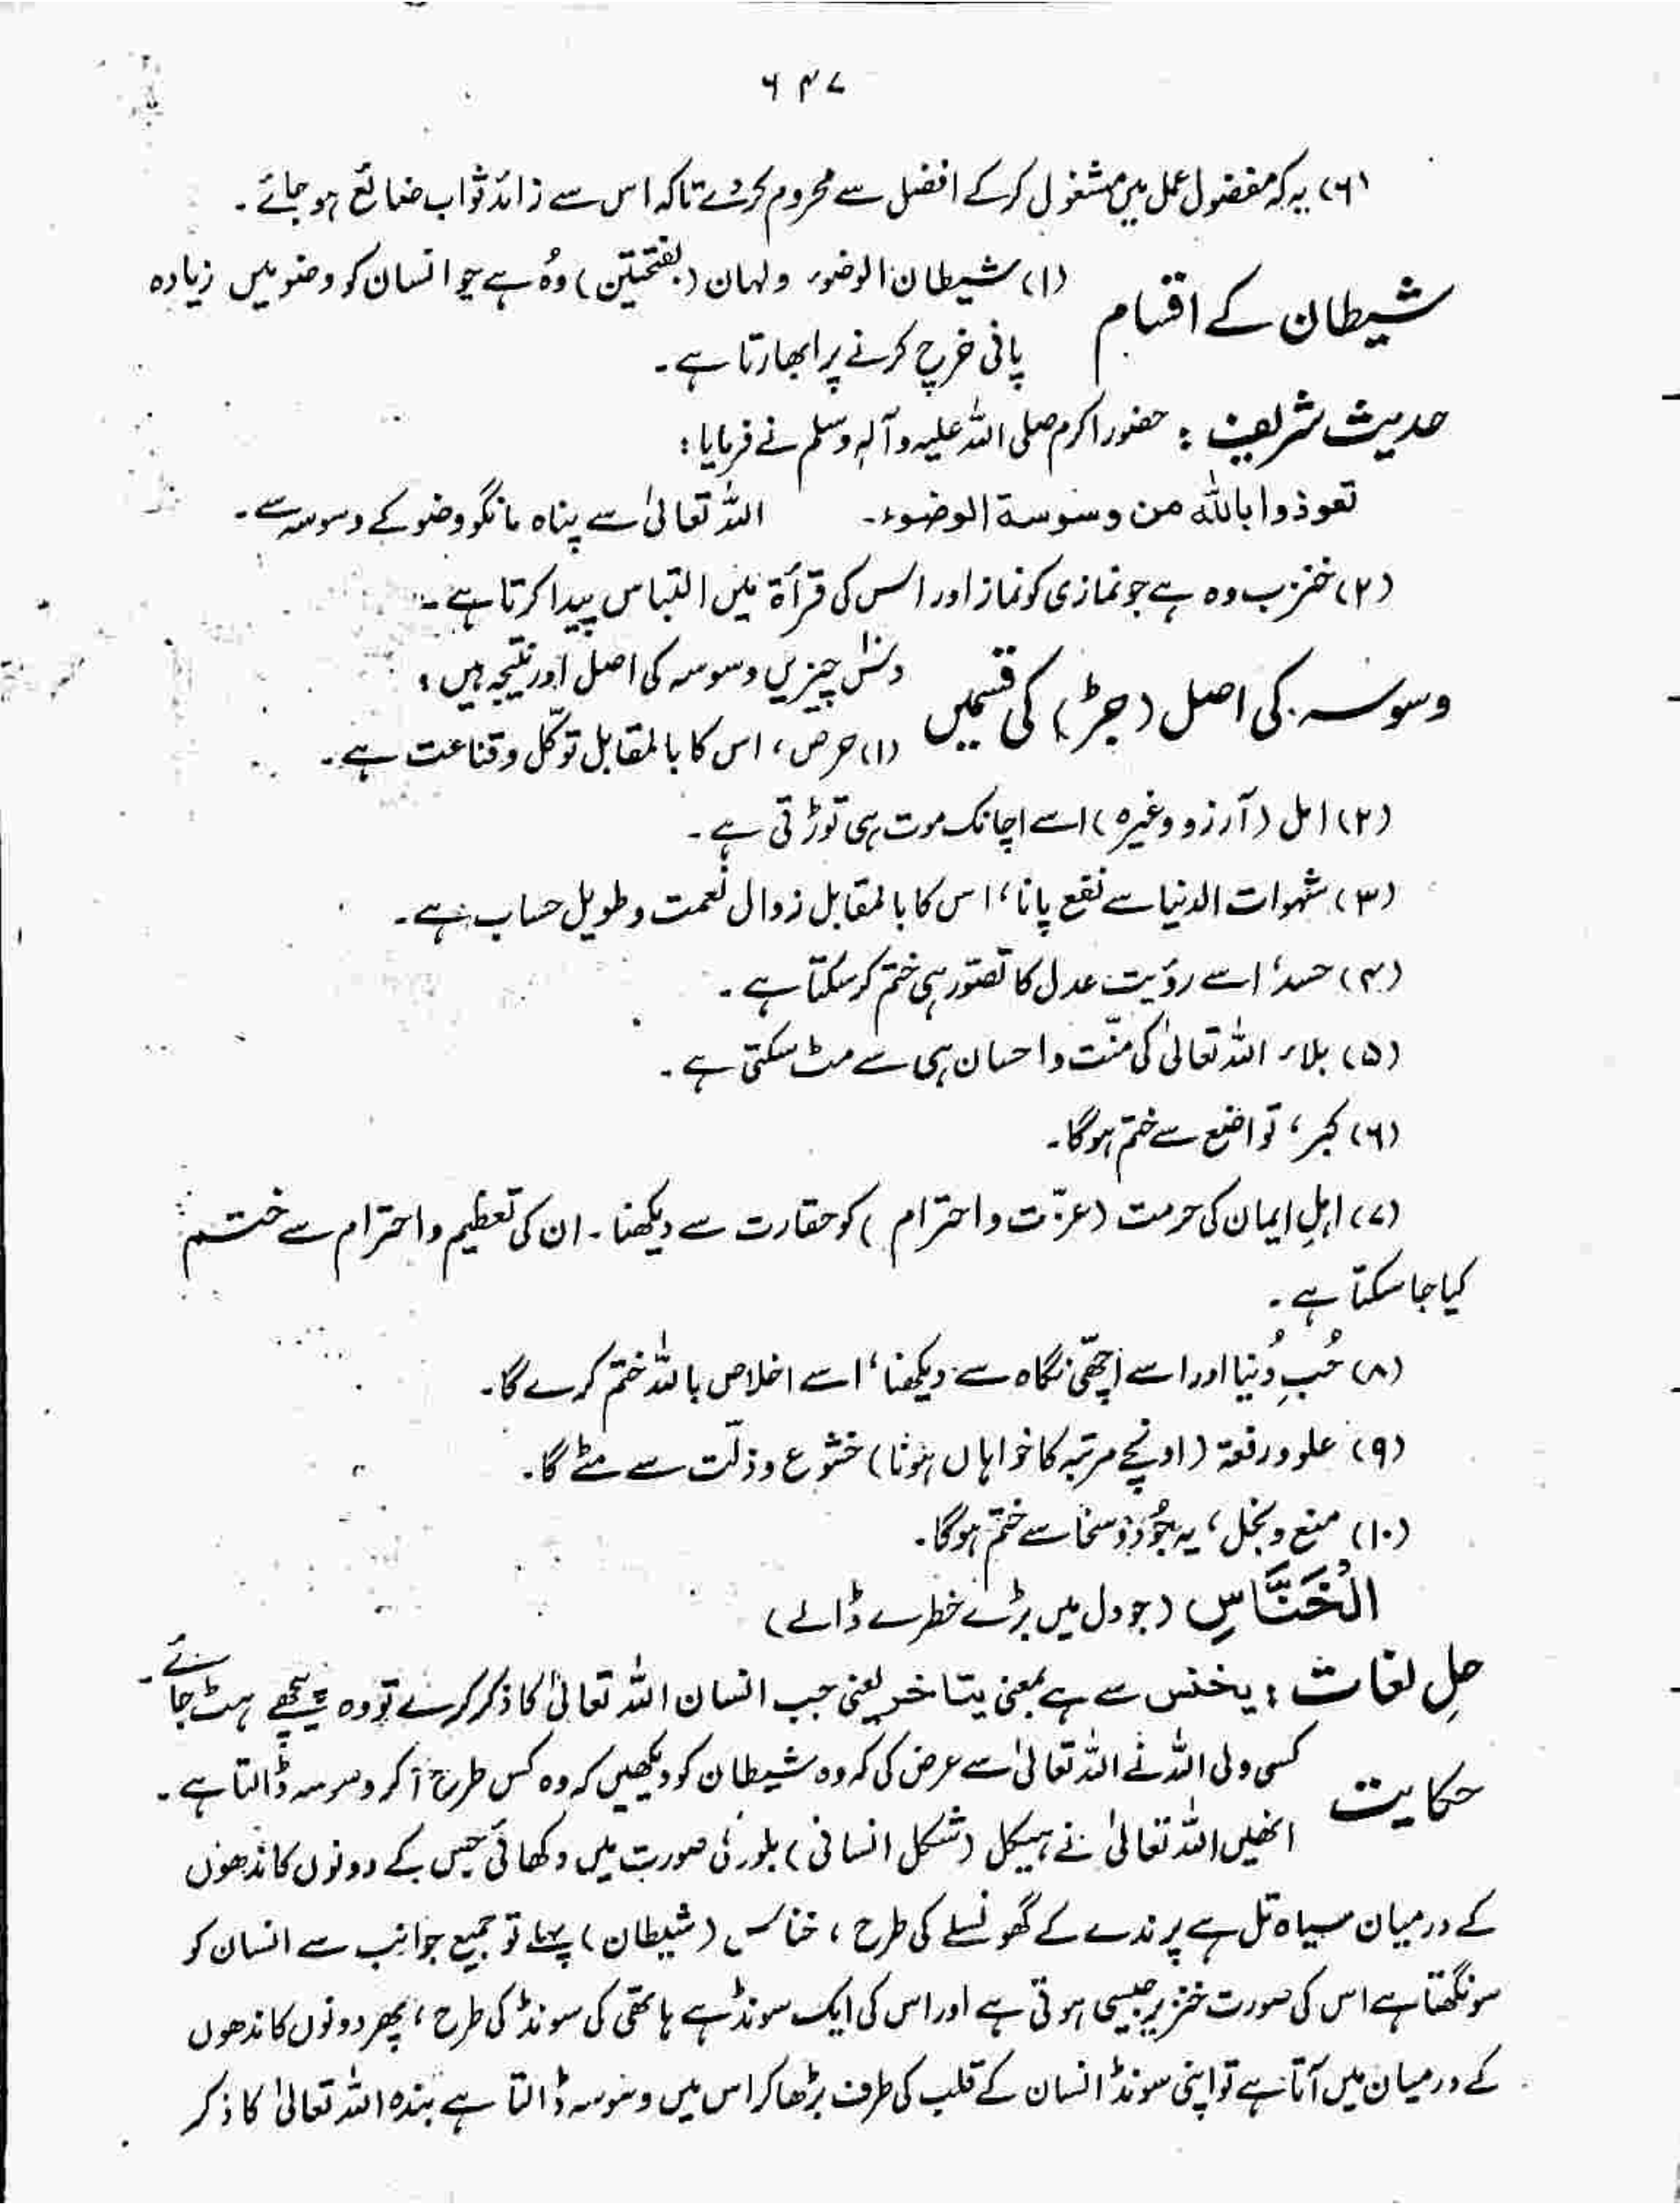 ۶۴۷
(۶) یہ کہ مفضول عمل میں مشغول کرکے افضل سے محروم کردے تاکہ اس سے زائد ثواب ضائع ہو جائے۔
شیطان کے اقسام
(۱) شیطان الوضوء ولہان (بفتحتین) وُہ ہے جو انسان کو وضو میں زیادہ
پانی خرچ کرنے پر ابھارتا ہے۔
حدیث شریف : حضور اکرم صلی اللہ علیہ وآلہٖ وسلم نے فرمایا :
تعوذوا باللہ من وسوسۃ الوضوء۔ اللہ تعالیٰ سے پناہ مانگو وضو کے وسوسہ سے۔
(۲) خنزب وہ ہے جو نمازی کو نماز اور اس کی قرأۃ میں التباس پیدا کرتا ہے۔
وسوسہ کی اصل (جڑ) کی قسمیں
دسؔ چیزیں وسوسہ کی اصل اور نتیجہ ہیں :
(۱) حرص ، اس کا بالمقابل توکّل و قناعت ہے۔
(۲) امل (آرزو وغیرہ) اسے اچانک موت ہی توڑتی ہے۔
(۳) شہوات الدنیا سے نفع پانا ، اس کا بالمقابل زوال نعمت و طویل حساب ہے۔
(۴) حسد، اسے رؤیت عدل کا تصوّر ہی ختم کر سکتا ہے۔
(۵) بلاء اللہ تعالیٰ کی منّت و احسان ہی سے مٹ سکتی ہے۔
(۶) کبر ، تواضع سے ختم ہوگا۔
(۷) اہلِ ایمان کی حرمت (عزّت و احترام) کو حقارت سے دیکھنا۔ ان کی تعظیم و احترام سے ختم
کیا جا سکتا ہے۔
(۸) حُبِ دُنیا اور اسے اچھّی نگاہ سے دیکھنا ، اسے اخلاص باللہ ختم کرے گا۔
(۹) علو و رفعۃ (اونچے مرتبہ کا خواہاں ہونا) خشوع و ذلّت سے مٹے گا۔
(۱۰) منع و بخل ، یہ جُود و سخا سے ختم ہوگا۔
الْخَنَّاسِ (جو دل میں بڑے خطرے ڈالے)
حلِ لغات : یخنس سے ہے بمعنی یتاخر یعنی جب انسان اللہ تعالیٰ کا ذکر کرے تو وہ پیچھے ہٹ جائے۔
حکایت
کسی ولی اللہ نے اللہ تعالیٰ سے عرض کی کہ وہ شیطان کو دیکھیں کہ وہ کس طرح آکر وسوسہ ڈالتا ہے۔
انھیں اللہ تعالیٰ نے ہیکل (شکل انسانی) بلور کی صورت میں دکھائی جس کے دونوں کاندھوں
کے درمیان سیاہ تل ہے پرندے کے گھونسلے کی طرح ، خناس (شیطان) پہلے تو جمیع جوانب سے انسان کو
سونگھتا ہے اس کی صورت خنزیر جیسی ہوتی ہے اور اس کی ایک سونڈ ہے ہاتھی کی سونڈ کی طرح ، پھر دونوں کاندھوں
کے درمیان میں آتا ہے تو اپنی سونڈ انسان کے قلب کی طرف بڑھا کر اس میں وسوسہ ڈالتا ہے بندہ اللہ تعالیٰ کا ذکر